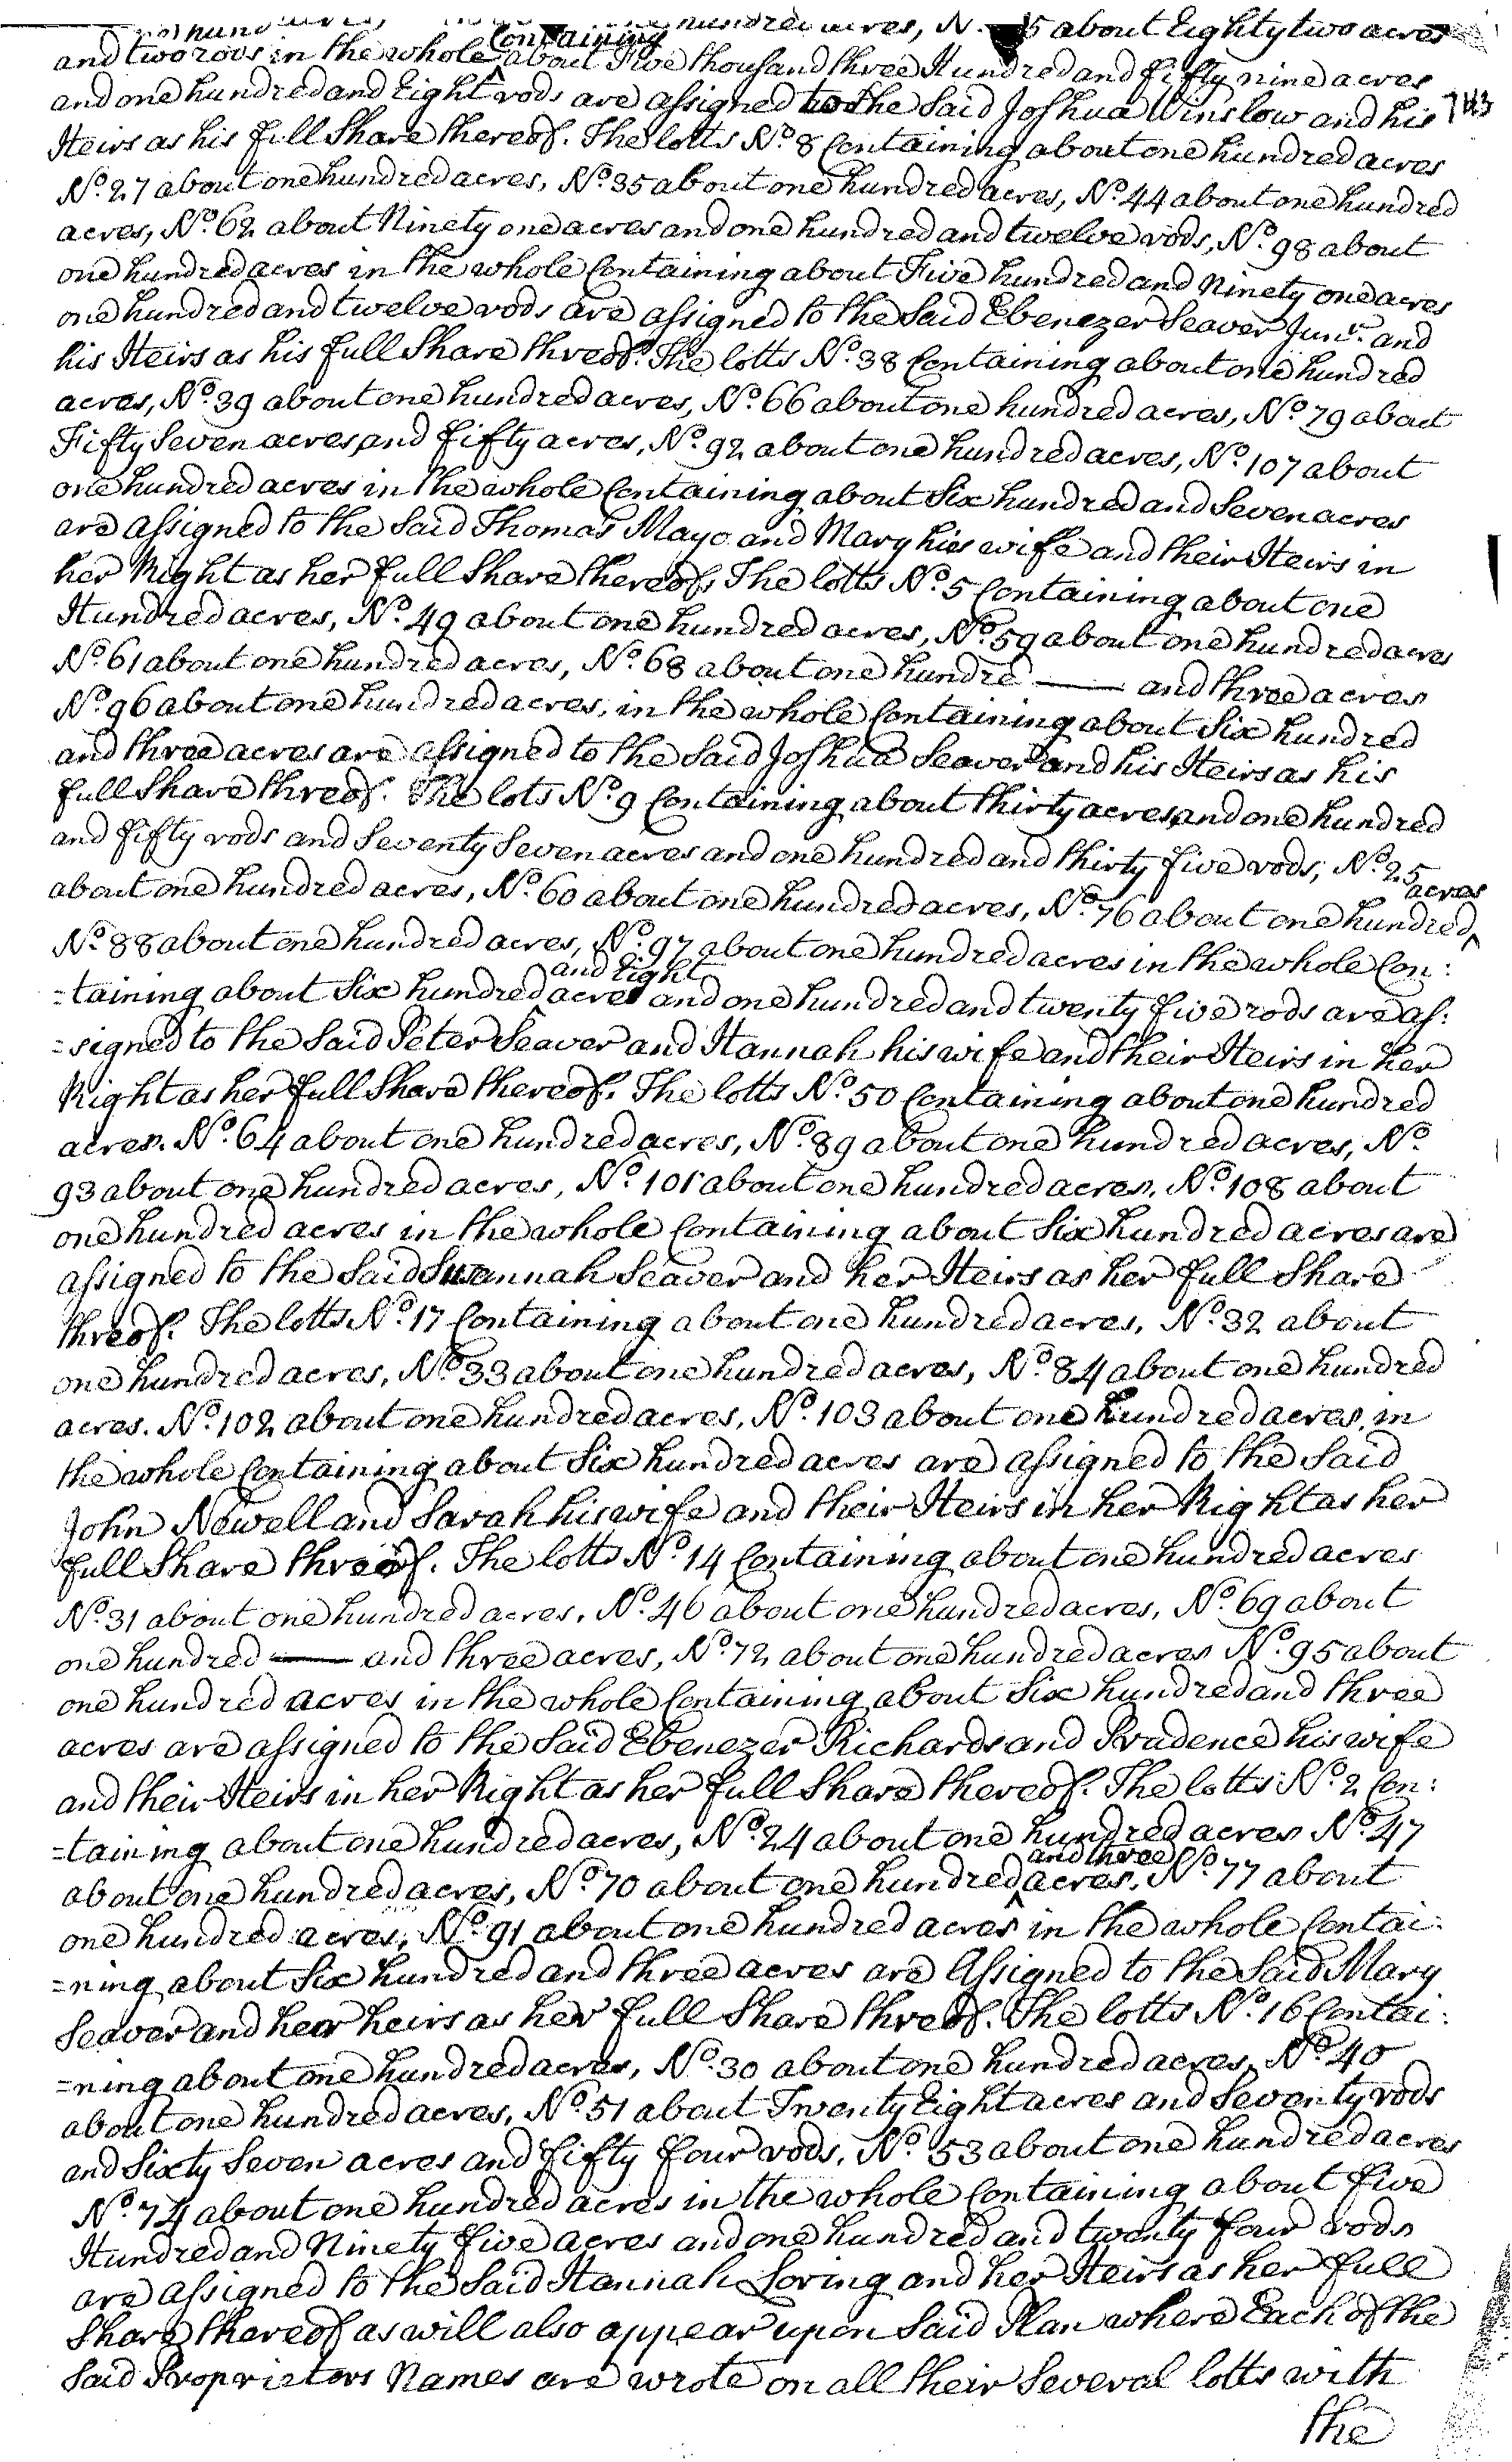 hundred acres, No. 5 about Eighty two acres
and two rods in the whole Containing about Five thousand three Hundred and fifty nine acres
and one hundred and Eight rods are assigned to the Said Joshua Winslow and his
Heirs as his full Share thereof. The lotts No. 8 Containing about one hundred acres
No. 27 about one hundred acres, No. 35 about one hundred acres, No. 44 about one hundred
acres, No. 62 about Ninety one acres and one hundred and twelve rods, No. 98 about
one hundred acres in the whole Containing about Five hundred and Ninety one acres
one hundred and twelve rods are assigned to the Said Ebenezer Seaver Junr. and
his Heirs as his full Share threof. The lotts No. 38 Containing about one hundred
acres, No. 39 about one hundred acres, No. 66 about one hundred acres, No. 79 about
Fifty Seven acres and fifty acres, No. 92 about one hundred acres, No. 107 about
one hundred acres in the whole Containing about Six hundred and Seven acres
are assigned to the Said Thomas Mayo and Mary his wife and their Heirs in
her Right as her full Share thereof. The lotts No. 5 Containing about one
Hundred acres, No. 49 about one hundred acres, No. 59 about one hundred acres
No. 61 about one hundred acres, No. 68 about one hundre — and three acres
No. 96 about one hundred acres, in the whole Containing about Six hundred
and three acres are assigned to the Said Joshua Seaver and his Heirs as his
full Share threof. The lots No. 9 Containing about thirty acres, and one hundred
and fifty rods and Seventy Seven acres and one hundred and thirty five rods, No. 25
about one hundred acres, No. 60 about one hundred acres, No. 76 about one hundred acres
No. 88 about one hundred acres, No. 97 about one hundred acres in the whole Con:
=taining about Six hundred and Eight acres and one hundred and twenty five rods are as:
=signed to the Said Peter Seaver and Hannah his wife and their Heirs in her
Right as her full Share thereof. The lotts No. 50 Containing about one hundred
acres. No. 64 about one hundred acres, No. 89 about one hundred acres, No.
93 about one hundred acres, No. 101 about one hundred acres, No. 108 about
one hundred acres in the whole Containing about Six hundred acres are
assigned to the Said Susannah Seaver and her Heirs as her full Share
threof. The lotts No. 17 Containing about one hundred acres, No. 32 about
one hundred acres, No. 33 about one hundred acres, No. 84 about one hundred
acres. No. 102 about one hundred acres, No. 103 about one hundred acres, in
the whole Containing about Six hundred acres are assigned to the Said
John Newell and Sarah his wife and their Heirs in her Right as her
full Share threof. The lotts No. 14 Containing about one hundred acres
No. 31 about one hundred acres, No. 46 about one hundred acres, No. 69 about
one hundred — and three acres, No. 72 about one hundred acres No. 95 about
one hundred acres in the whole Containing about Six hundred and three
acres are assigned to the Said Ebenezer Richards and Prudence his wife
and their Heirs in her Right as her full Share thereof. The lotts No. 2 Con:
=taining about one hundred acres, No. 24 about one hundred acres No. 47
about one hundred acres, No. 70 about one hundred and three acres, No. 77 about
one hundred acres, No. 91 about one hundred acres in the whole Contai:
=ning about Six hundred and three acres are Assigned to the Said Mary
Seaver and her heirs as her full Share threof. The lotts No. 16 Contai:
=ning about one hundred acres, No. 30 about one hundred acres, No. 40
about one hundred acres, No. 51 about Twenty Eight acres and Seventy rods
and Sixty Seven acres and fifty four rods, No. 53 about one hundred acres
No. 74 about one hundred acres in the whole Containing about five
Hundred and Ninety five acres and one hundred and twenty four rods
are assigned to the Said Hannah Loring and her Heirs as her full
Share thereof as will also appear upon Said Plan where Each of the
Said Proprietors Names are wrote on all their Several lotts with
the